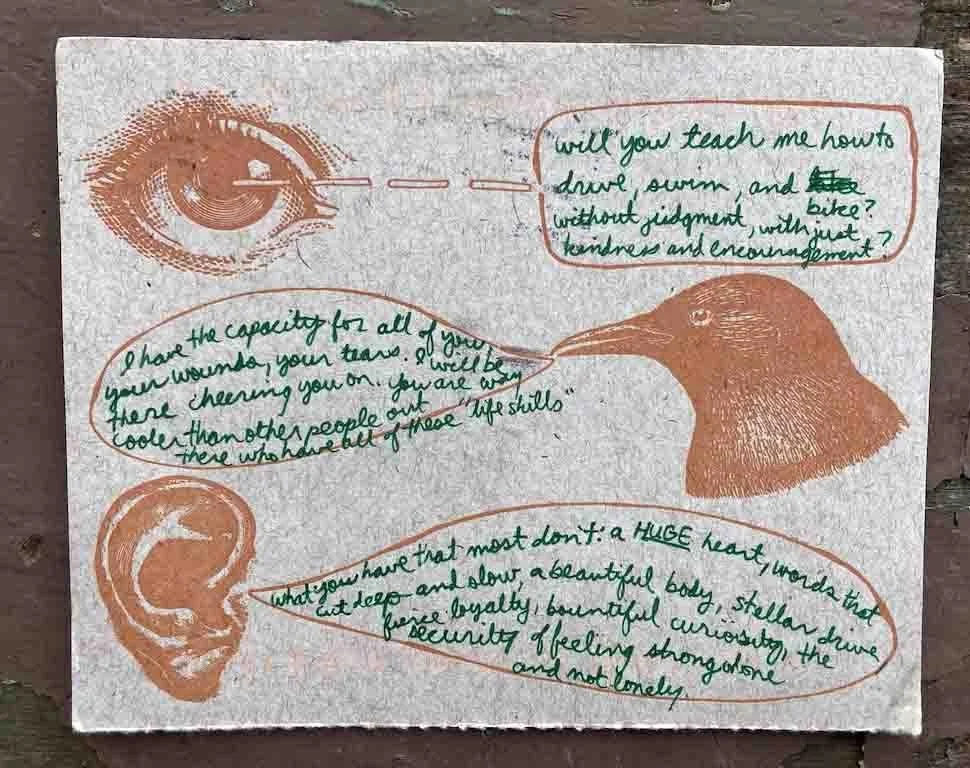 will you teach me how to
drive, swim, and
bike?
without judgment, with just
kindness and encouragement?
I have the capacity for all of you
your wounds, your tears. I will be
there cheering you on. you are way
cooler than other people out
there who have all of these "life skills"
what you have that most don't: a HUGE heart, words that
cut deep and slow, a beautiful body, stellar drive
fierce loyalty, bountiful curiousity, the
security of feeling strong alone
and not lonely.